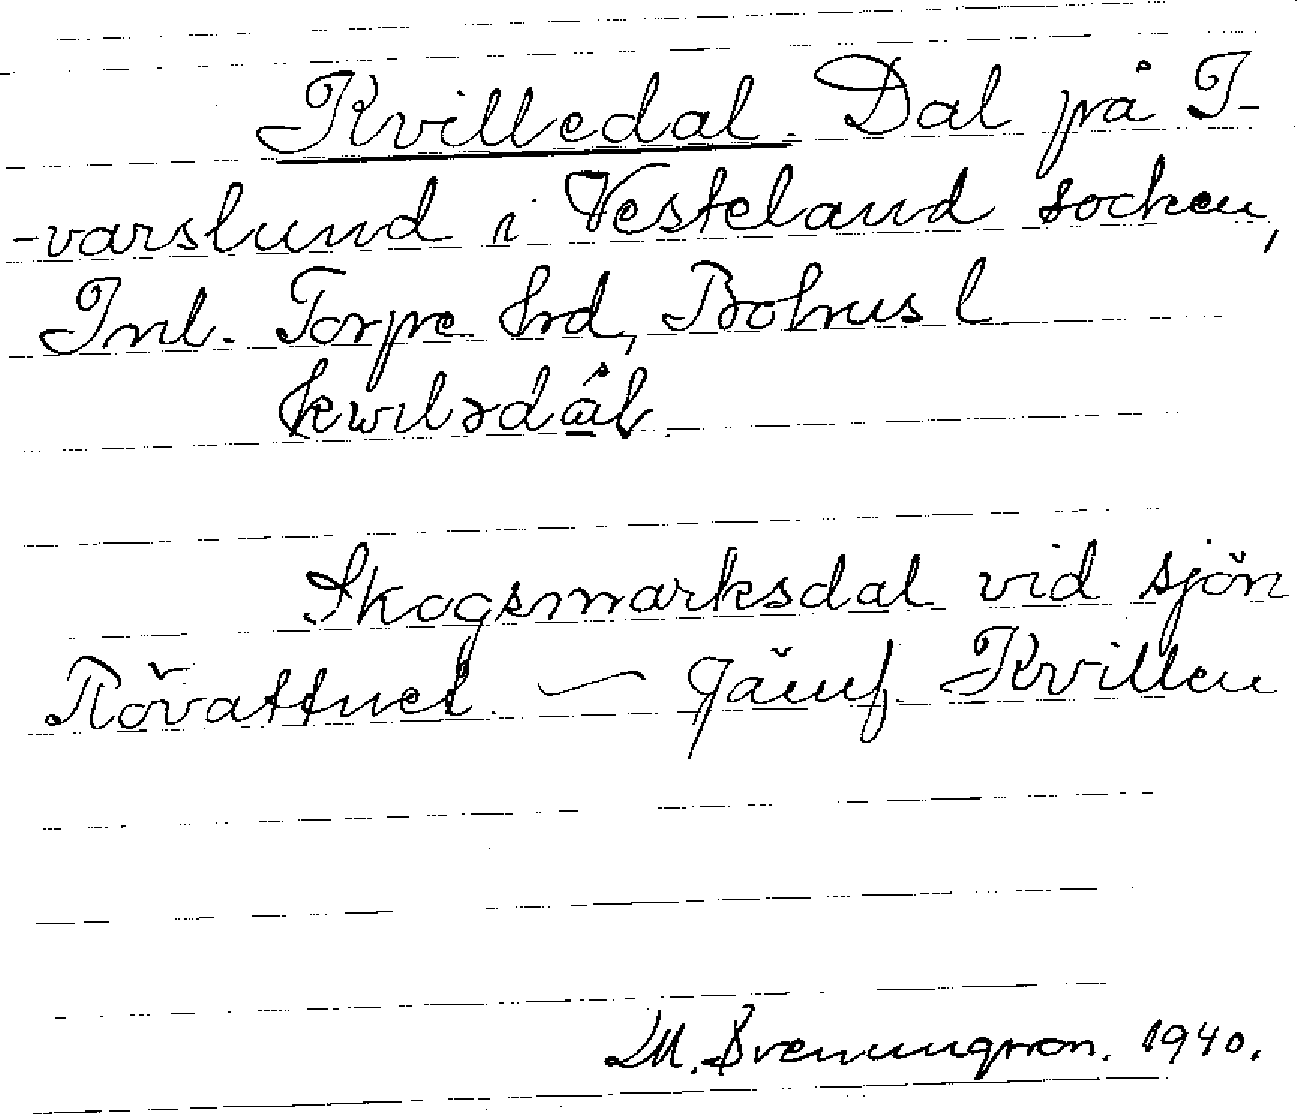 Kvilledal. Dal på I-
-varslund i Vesteland socken,
Inl. Torpe hrd, Bohus l
kwilədål
Skogsmarksdal vid sjön
Rövattnet — Jämf. Kvillen
M. 1940.